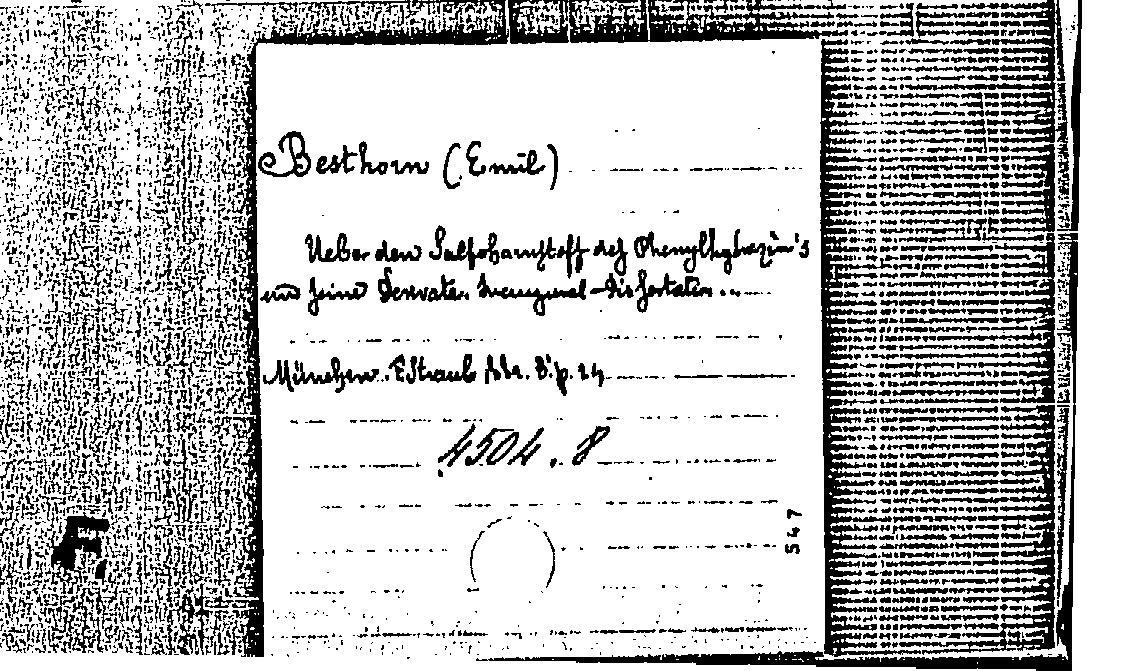 Besthorn (Emil)
Ueber den Sulfoharnstoff des Phenylhydrazin's
und seine Derivate. Inaugural-Dissertation...
München. E. Straub 8°. p. 24
4504. 8
547
F.